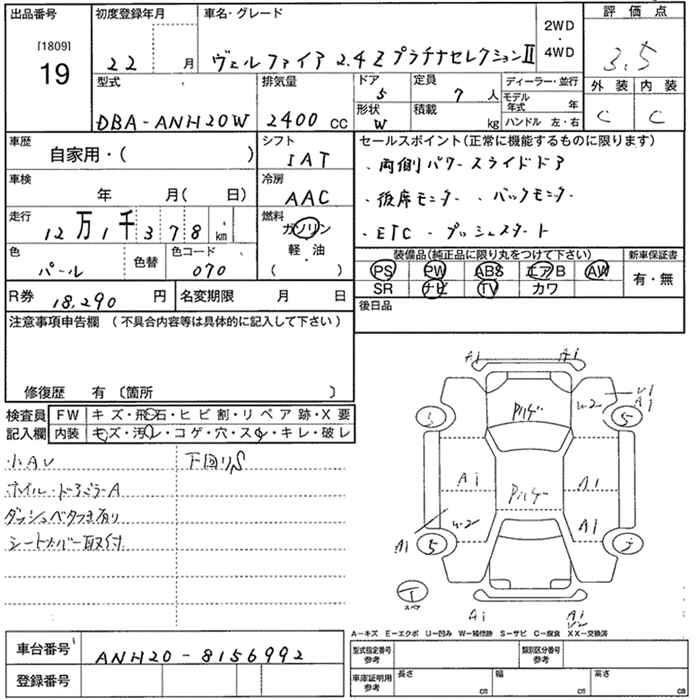 出品番号 初度登録年月 車名・グレード 2WD・4WD 評価点
[1809]
19 22 月 ヴェルファイア 2.4 Z プラチナセレクションⅡ 3.5
外装 内装
C C
型式 排気量 ドア 定員 ディーラー・並行
5 7人 モデル年式 年
DBA-ANH20W 2400 CC 形状 W 積載 kg ハンドル 左・右
車歴 シフト セールスポイント(正常に機能するものに限ります)
自家用・( ) IAT ・両側パワースライドドア
車検 冷房
年 月( 日) AAC ・後席モニター ・バックモニター
走行 燃料
12万1千378km ガソリン ・ETC ・プッシュスタート
軽・油
( )
色 色替 色コード 装備品(純正品に限り丸をつけて下さい) 新車保証書
パール 070 PS PW ABS エアB AW 有・無
SR ナビ TV カワ
R券 18,290円 名変期限 月 日 後日品
注意事項申告欄(不具合内容等は具体的に記入して下さい)
修復歴 有〔箇所 〕
検査員 FW キズ・飛石・ヒビ割・リペア跡・X要
記入欄 内装 キズ・汚レ・コゲ・穴・スレ・キレ・破レ
小AU 下回りS
ホイル・ドアミラーA
ダッシュベタつき有り
シートカバー取付
A1 A1
U1
A1
5 W2 5
Pルーゲ
A1 A1
Pルーゲ
W2 A1
A1
5
T
スペア
A1 A1
W2
A−キズ E−エクボ U−凹み W−補修跡 S−サビ C−腐食 XX−交換済
車台番号 ANH20-8156992 型式指定番号 参考 類別区分番号 参考
登録番号 車庫証明用 参考 長さ cm 幅 cm 高さ cm